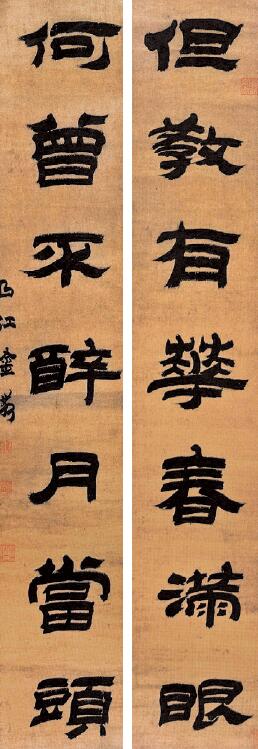 但教有華春滿眼
何曾不醉月當頭
江